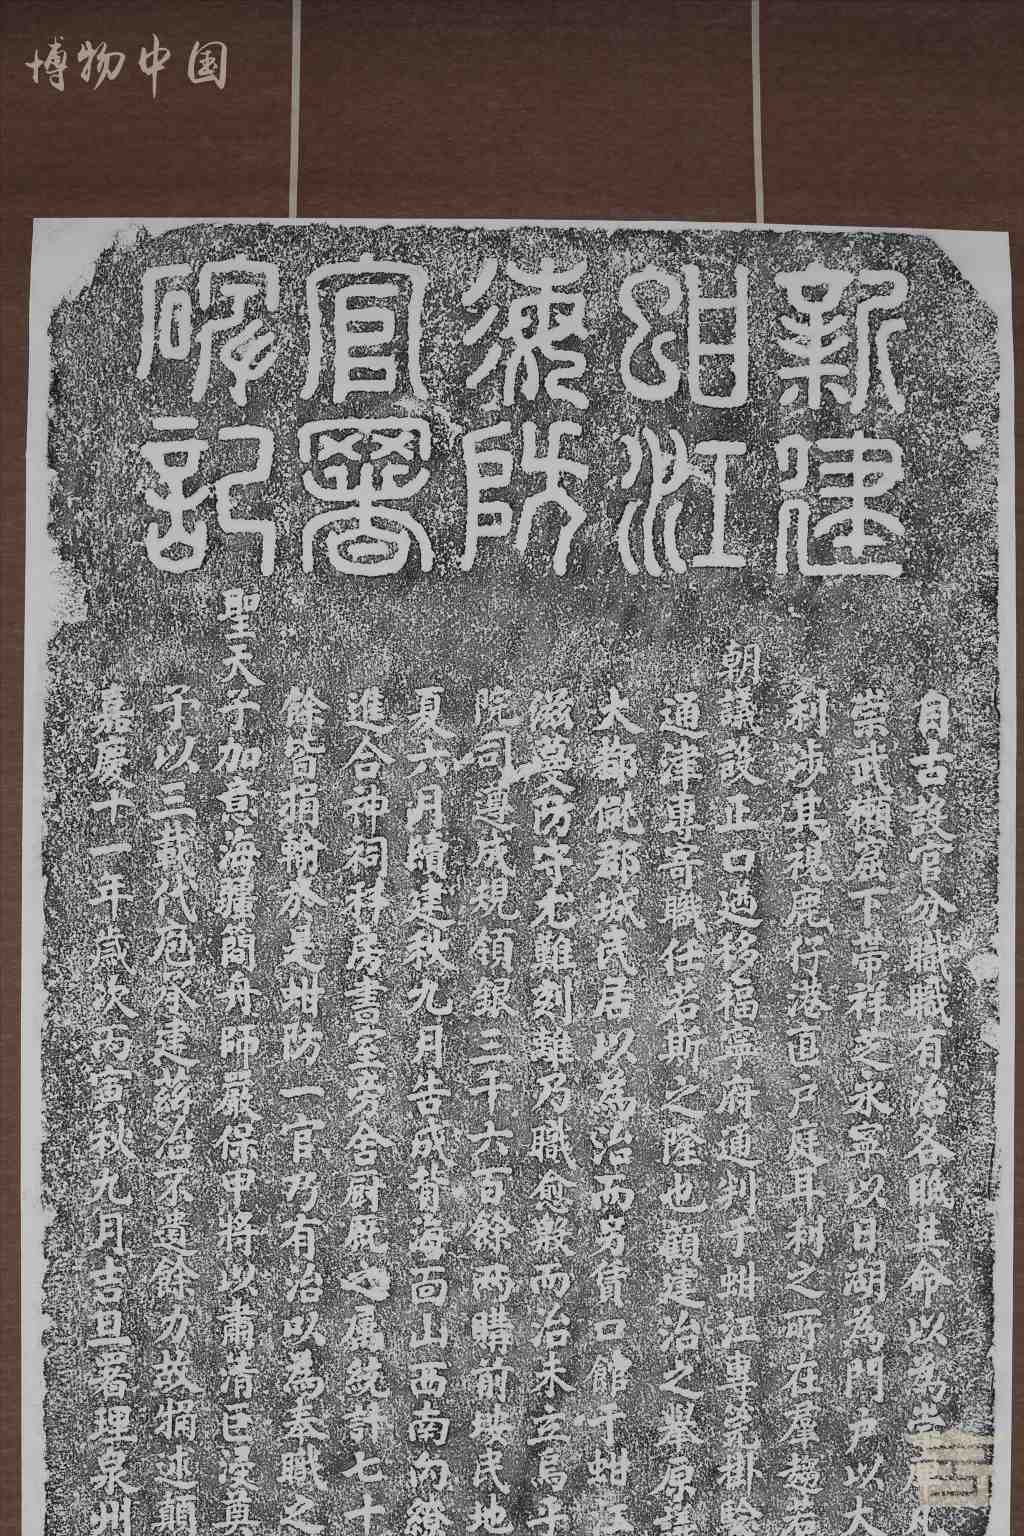 博物中国
新建
蚶江
海防
官署
碑記
自古設官分職職有治各眡其命以為
崇武獺窟下帶祥芝永寧以日湖為門戶以大
利涉其視鹿仔港直戶庭耳利之所在羣趨若
朝議設正口遴移福寧府通判于蚶江專筦掛驗
通津專寄職任若斯之隆也顧建治之舉原
大都僦郡城民居以為治而勞貨口雜于蚶江
滋蔓防守尤難刻雖乃職愈繁而治未立烏乎
院司遵成規領銀三千六百餘兩購前埈民地
夏六月續建秋九月告成背海面山西南向繚
進合神祠科房書室旁舍廚厩之屬統計七十
餘皆捐輸於是蚶防一官乃有治以為奉職之
聖天子加意海疆簡舟師嚴保甲將以肅清巨浸奠
予以三載代庖荅建茲治不遺餘力故猬述顛
嘉慶十一年歲次丙寅秋九月吉旦署理泉州